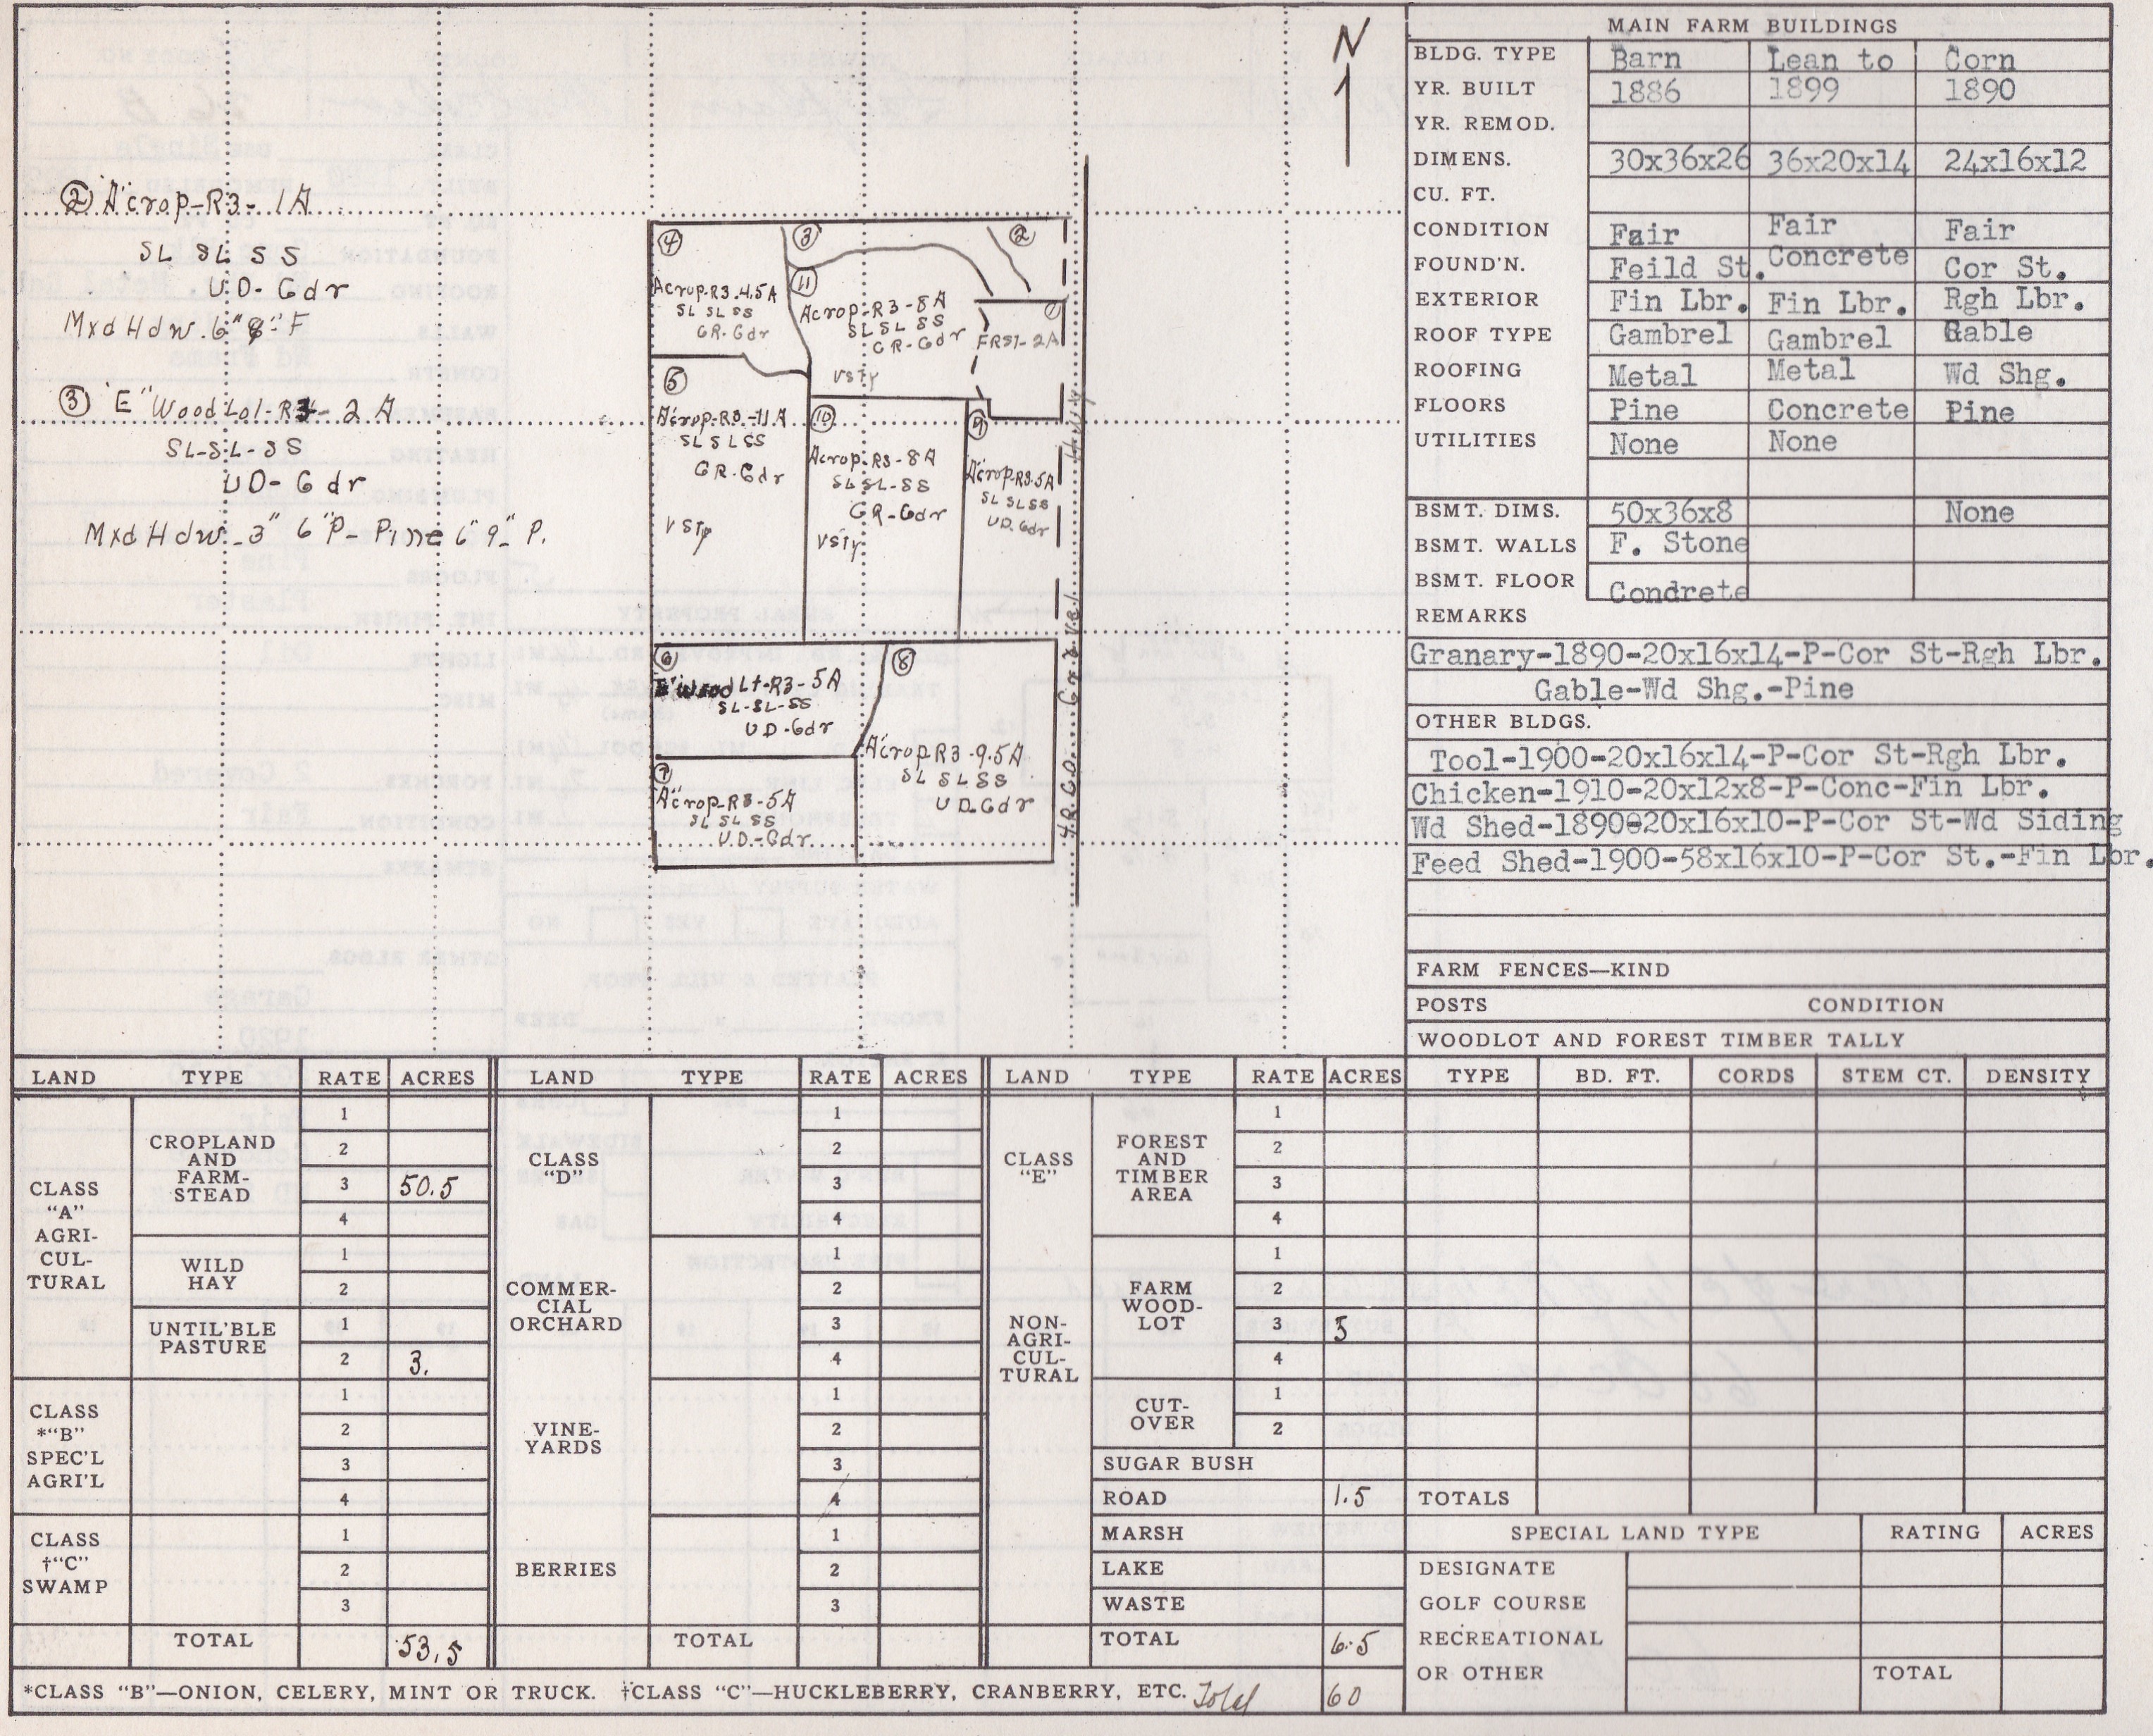 N
② "A" crop-R3-1A
SL SL SS
UD-Gdr
Mxd Hdw. 6" 8" F
③ "E" Wood Lot-R3-2A
SL-SL-SS
UD-Gdr
Mxd Hdw-3" 6" P-Pine 6" 9" P.
④
"A" crop-R3-4.5A
SL SL SS
GR-Gdr
③
②
⑪
"A" crop-R3-8A
SL SL SS
GR-Gdr
VSty
①
FRST-2A
⑤
"A" crop-R3-11A
SL SL SS
GR-Gdr
VSty
⑩
"A" crop-R3-8A
SL SL-SS
GR-Gdr
VSty
⑨
"A" crop-R3-5A
SL SL SS
UD-Gdr
⑥
"E" Wood Lt-R3-5A
SL-SL-SS
UD-Gdr
⑦
"A" crop-R3-5A
SL SL SS
UD-Gdr
⑧
"A" crop R3-9.5A
SL SL SS
UD-Gdr
Gravel
MAIN FARM BUILDINGS
BLDG. TYPE Barn Lean to Corn
YR. BUILT 1886 1899 1890
YR. REMOD.
DIMENS. 30x36x26 36x20x14 24x16x12
CU. FT.
CONDITION Fair Fair Fair
FOUND'N. Feild St. Concrete Cor St.
EXTERIOR Fin Lbr. Fin Lbr. Rgh Lbr.
ROOF TYPE Gambrel Gambrel Gable
ROOFING Metal Metal Wd Shg.
FLOORS Pine Concrete Pine
UTILITIES None None
BSMT. DIMS. 50x36x8 None
BSMT. WALLS F. Stone
BSMT. FLOOR Condrete
REMARKS
Granary-1890-20x16x14-P-Cor St-Rgh Lbr.
Gable-Wd Shg.-Pine
OTHER BLDGS.
Tool-1900-20x16x14-P-Cor St-Rgh Lbr.
Chicken-1910-20x12x8-P-Conc-Fin Lbr.
Wd Shed-1890-20x16x10-P-Cor St-Wd Siding
Feed Shed-1900-58x16x10-P-Cor St.-Fin Lbr.
FARM FENCES—KIND
POSTS CONDITION
WOODLOT AND FOREST TIMBER TALLY
TYPE BD. FT. CORDS STEM CT. DENSITY
TOTALS
SPECIAL LAND TYPE RATING ACRES
DESIGNATE
GOLF COURSE
RECREATIONAL
OR OTHER TOTAL
LAND TYPE RATE ACRES
CLASS "A" AGRI-CUL-TURAL
CROPLAND AND FARM-STEAD
1
2
3 50.5
4
WILD HAY
1
2
UNTIL'BLE PASTURE
1
2 3.
CLASS *"B" SPEC'L AGRI'L
1
2
3
4
CLASS †"C" SWAMP
1
2
3
TOTAL 53.5
LAND TYPE RATE ACRES
CLASS "D"
1
2
3
4
COMMER-CIAL ORCHARD
1
2
3
4
VINE-YARDS
1
2
3
4
BERRIES
1
2
3
TOTAL
LAND TYPE RATE ACRES
CLASS "E"
NON-AGRI-CUL-TURAL
FOREST AND TIMBER AREA
1
2
3
4
FARM WOOD-LOT
1
2
3 5
4
CUT-OVER
1
2
SUGAR BUSH
ROAD 1.5
MARSH
LAKE
WASTE
TOTAL 6.5
*CLASS "B"—ONION, CELERY, MINT OR TRUCK. †CLASS "C"—HUCKLEBERRY, CRANBERRY, ETC. Total 60